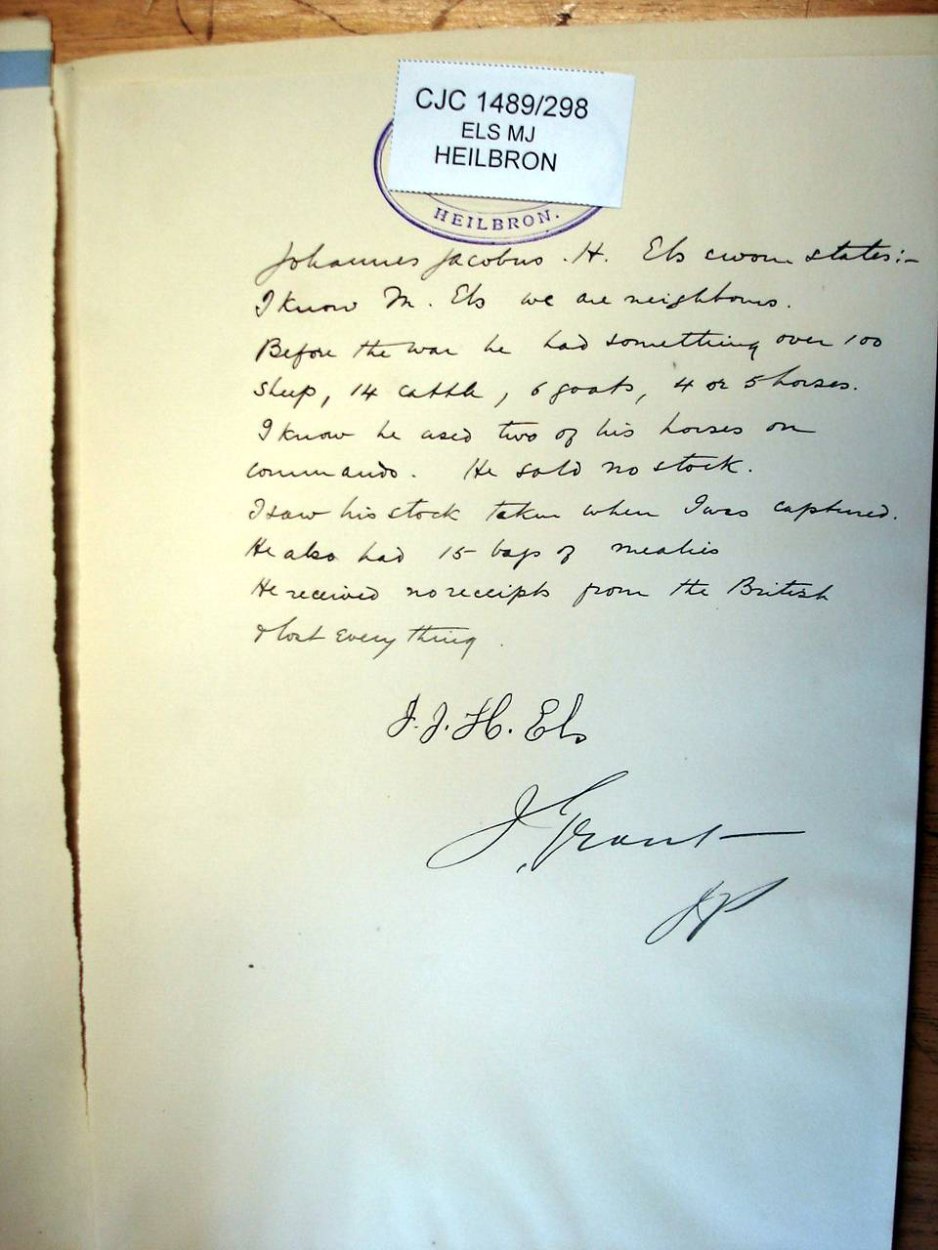 CJC 1489/298
ELS MJ
HEILBRON
HEILBRON.
Johannes Jacobus .H. Els sworn states:-
I know M. Els we are neighbours.
Before the war he had something over 100
sheep, 14 cattle, 6 goats, 4 or 5 horses.
I know he used two of his horses on
commando. He sold no stock.
I saw his stock taken when I was captured.
He also had 15 bags of mealies
He received no receipts from the British
& lost everything.
J.J.H. Els
J. Grant
JP